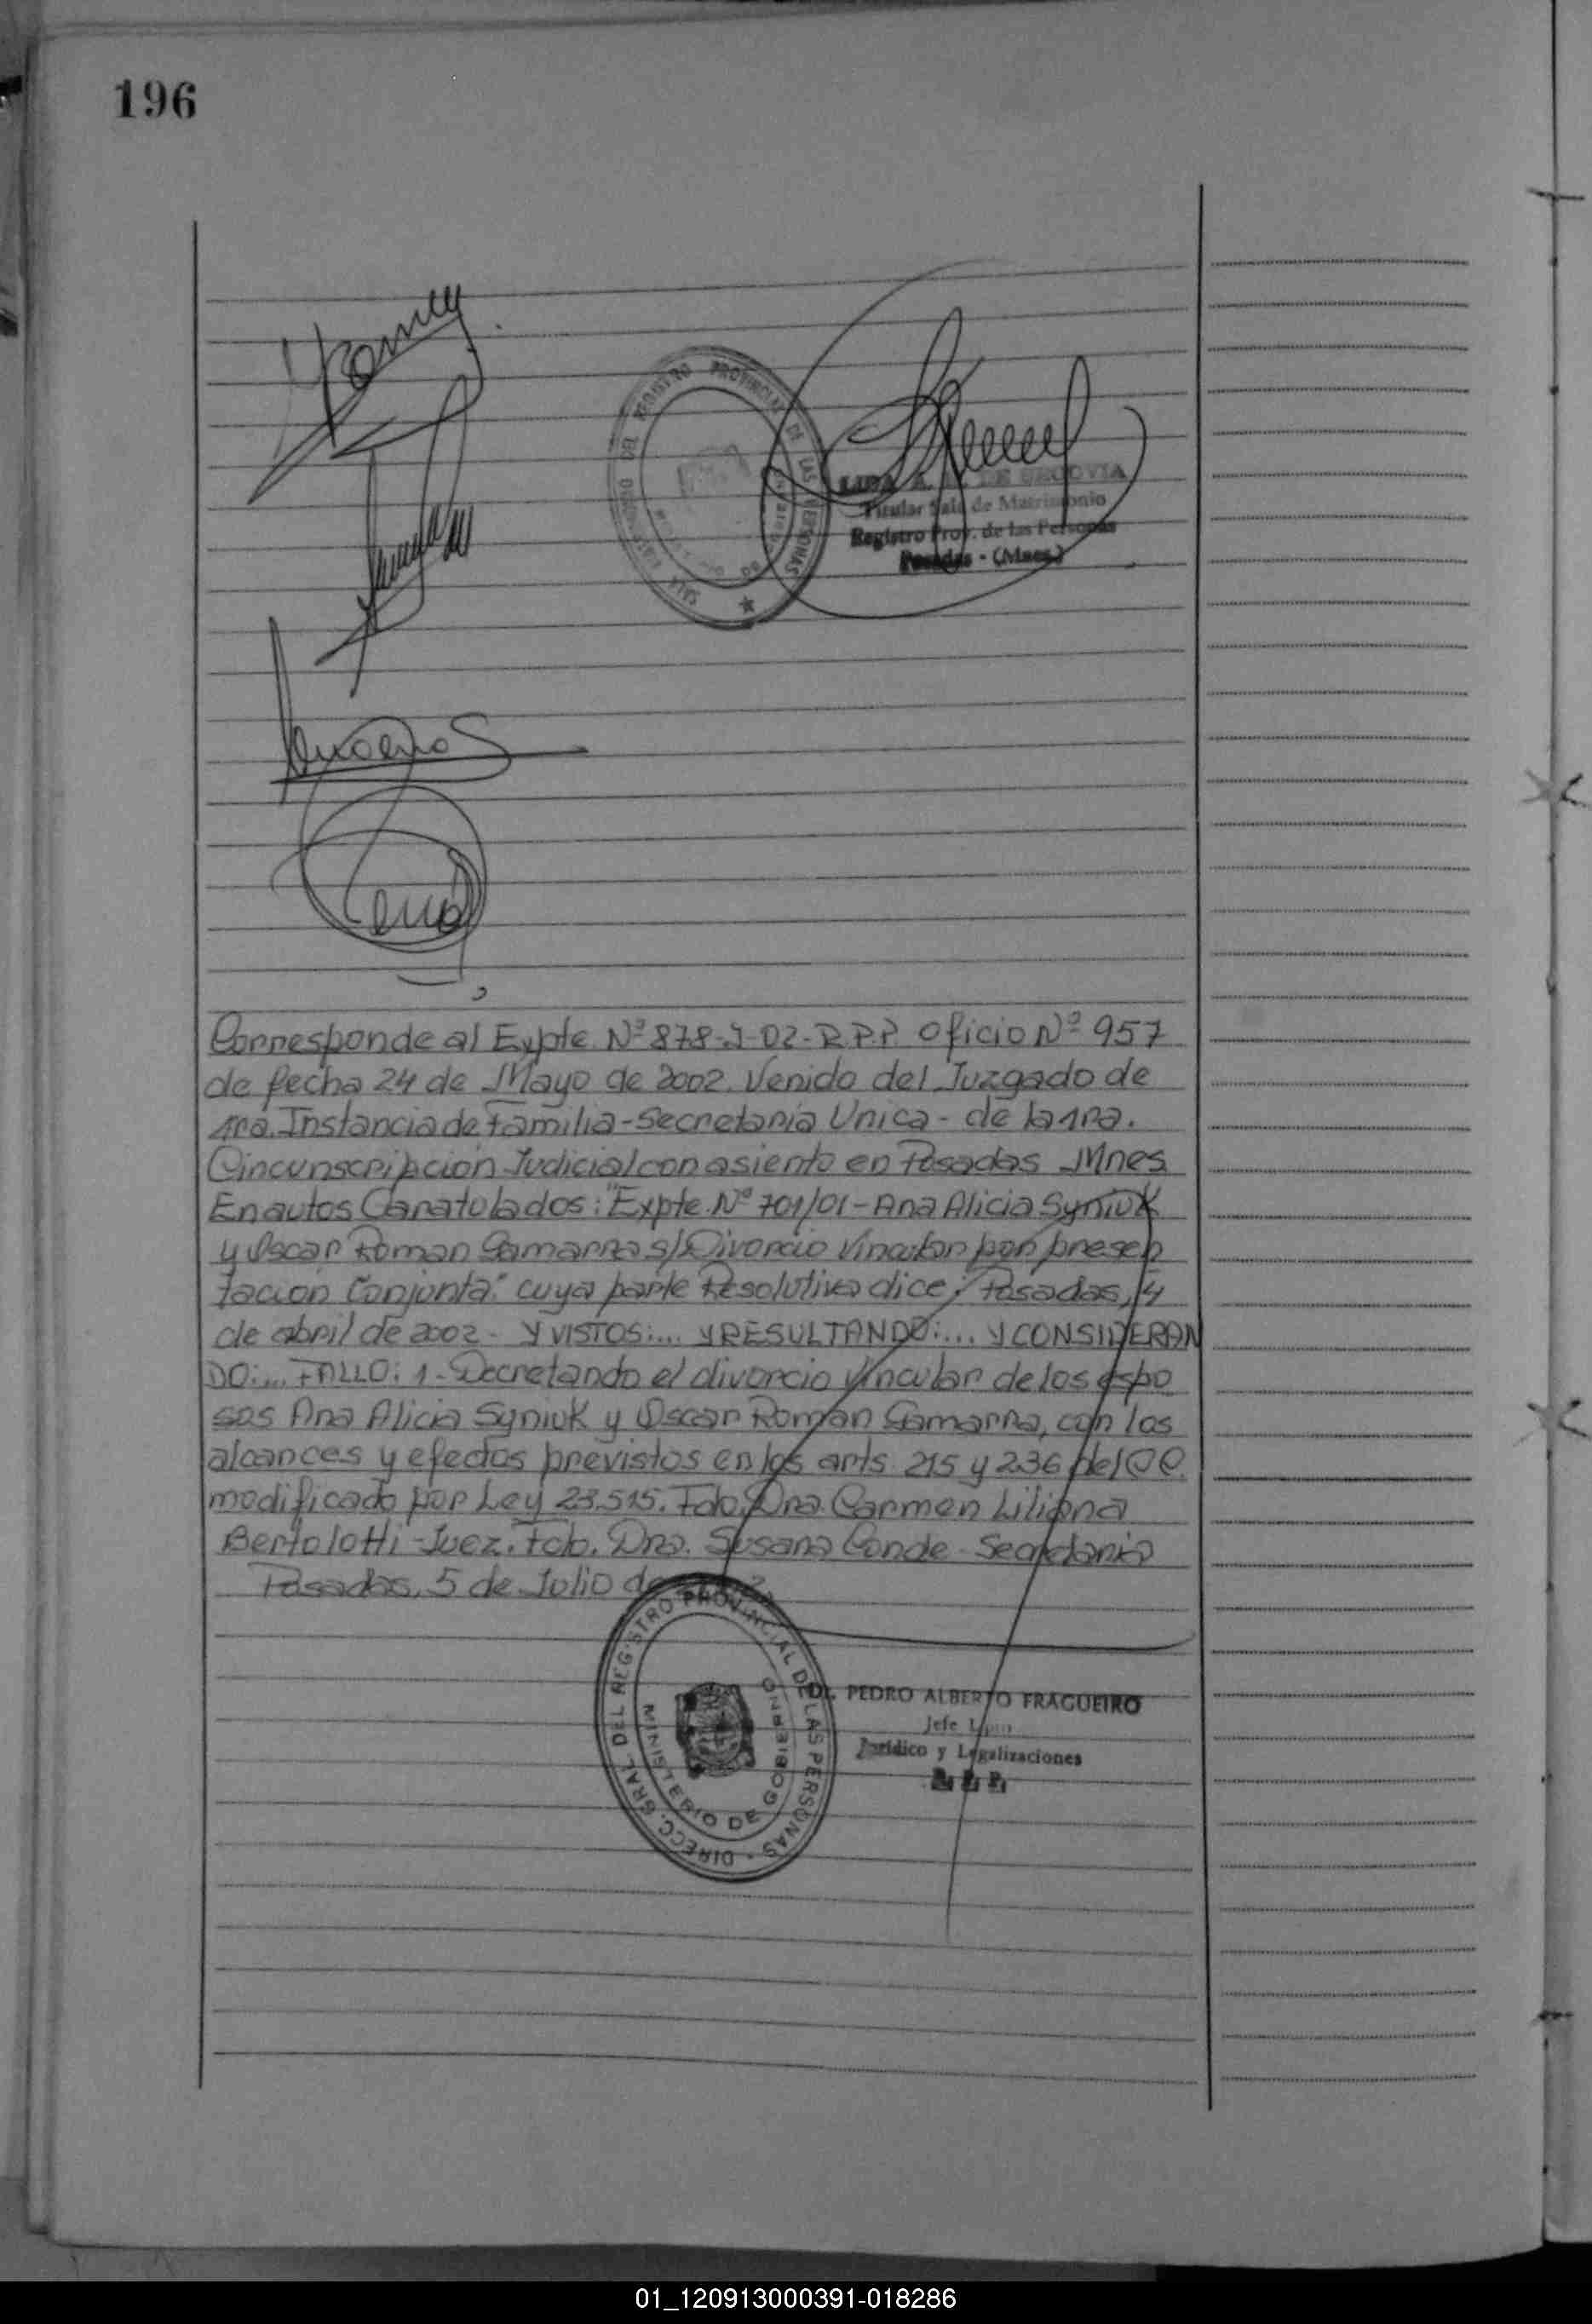 196
SALA DEL REGISTRO PROVINCIAL DE LAS PERSONAS
DE SEGOVIA
Titular Sala de Matrimonio
Registro Prov. de las Personas
Posadas - (Mnes.)
Corresponde al Expte. Nº 878-J-02-R.P.P. Oficio Nº 957
de fecha 24 de Mayo de 2002. Venido del Juzgado de
1ra. Instancia de Familia - Secretaria Unica - de la 1ra.
Circunscripcion Judicial con asiento en Posadas Mnes
En autos Caratulados: "Expte. Nº 701/01 - Ana Alicia Syniuk
y Oscar Roman Gamarra s/Divorcio Vincular por presen
tacion Conjunta" cuya parte Resolutiva dice: Posadas, 4
de abril de 2002 - Y VISTOS:... Y RESULTANDO:... Y CONSIDERAN
DO:... FALLO: 1 - Decretando el divorcio vincular de los espo
sos Ana Alicia Syniuk y Oscar Roman Gamarra, con los
alcances y efectos previstos en los arts. 215 y 236 del CC.
modificado por Ley 23.515. Fdo. Dra. Carmen Liliana
Bertolotti - Juez. Fdo. Dra. Susana Conde - Secretaria
Posadas, 5 de Julio de
DIRECC. GRAL. DEL REGISTRO PROVINCIAL DE LAS PERSONAS
MINISTERIO DE GOBIERNO
Dr. PEDRO ALBERTO FRAGUEIRO
Jefe Dpto
Jurídico y Legalizaciones
01_120913000391-018286